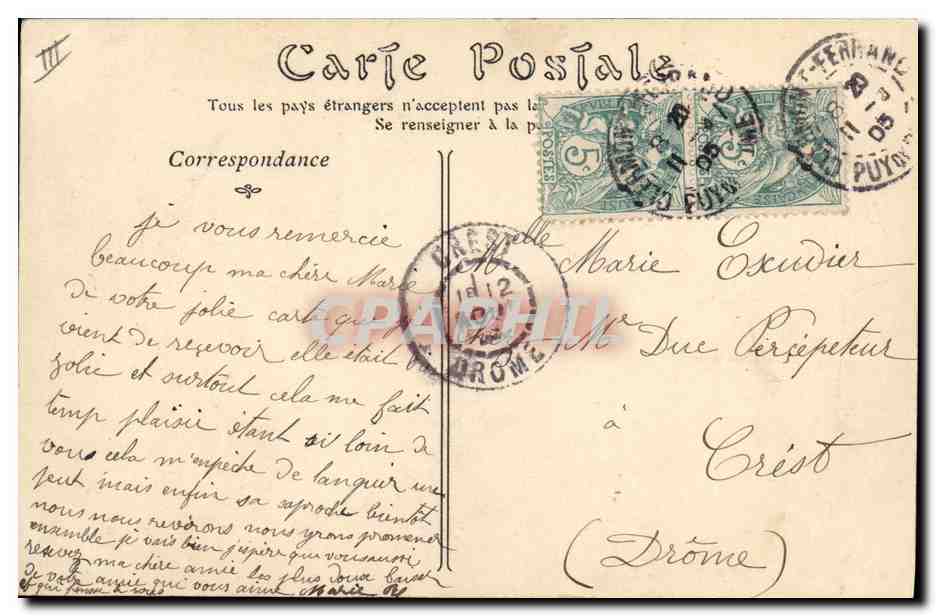 III
Carte Postale
Tous les pays étrangers n'acceptent pas la
Se renseigner à la p
Correspondance
je vous remercie
beaucoup ma chère Marie
de votre jolie carte que je
vient de reçevoir elle était
zolie et surtout cela me fait
temp plaisir étant si loin de
vous cela m'empèche de languir une
peut mais enfin sa saproche bientôt
nous nous revèrons nous yrons promener
ensemble je vais bien j'espère que vous aussi
resevez ma chère amie les plus doux baiser
de votre amie qui vous aime Marie
et qui pense à vous
Melle Marie Exudier
Mr Duc Perçepeteur
à
Crést
(Drôme)
POSTES
5c
CLERMONT-FERRAND
PUY DE
11
05
CLERMONT-FERRAND
PUY DE
11
05
CREST
12
DROME
CPAPHIL